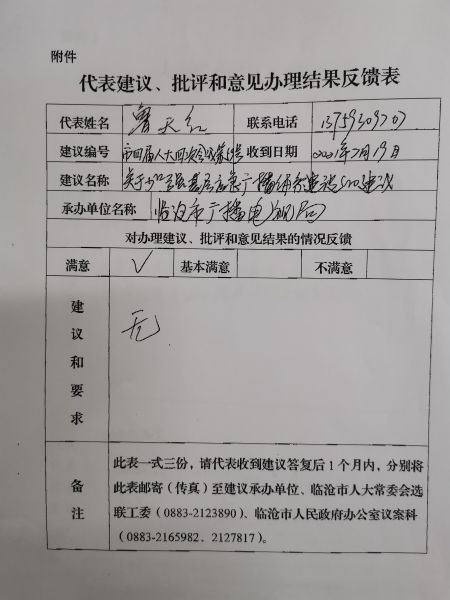 附件
代表建议、批评和意见办理结果反馈表
代表姓名 鲁天红 联系电话
建议编号 市四届人大四次会议第 号 收到日期 2021年7月19日
建议名称 关于加强基层应急广播体系建设的建议
承办单位名称 临沧市广播电视局
对办理建议、批评和意见结果的情况反馈
满意 √ 基本满意 不满意
建议和要求 无
备注
此表一式三份，请代表收到建议答复后1个月内，分别将
此表邮寄（传真）至建议承办单位、临沧市人大常委会选
联工委（0883-2123890）、临沧市人民政府办公室议案科
（0883-2165982．2127817）。